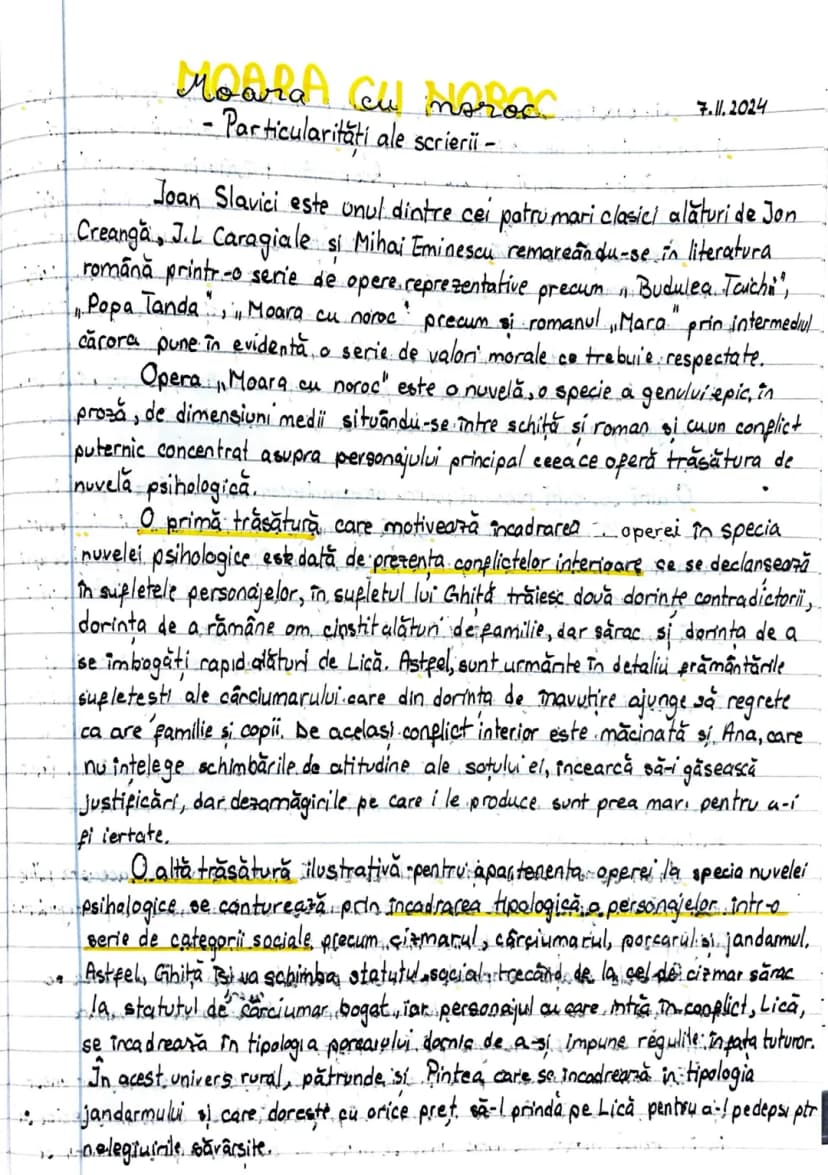 MOARA CU NOROC
Moara cu noroc
7.11.2024
- Particularități ale scrierii -
Ioan Slavici este unul dintre cei patru mari clasici alături de Ion
Creangă, I.L Caragiale și Mihai Eminescu remarcându-se în literatura
română printr-o serie de opere reprezentative precum „Budulea Taichii",
„Popa Tanda", „Moara cu noroc" precum și romanul „Mara" prin intermediul
cărora pune în evidență o serie de valori morale ce trebuie respectate.
Opera „Moara cu noroc" este o nuvelă, o specie a genului epic, în
proză, de dimensiuni medii situându-se între schiță și roman și cu un conflict
puternic concentrat asupra personajului principal ceea ce oferă trăsătura de
nuvelă psihologică.
O primă trăsătură care motivează încadrarea operei în specia
nuvelei psihologice este dată de prezența conflictelor interioare ce se declanșează
în sufletele personajelor, în sufletul lui Ghiță trăiesc două dorințe contradictorii,
dorința de a rămâne om cinstit alături de familie, dar sărac și dorința de a
se îmbogăți rapid alături de Lică. Astfel, sunt urmărite în detaliu frământările
sufletești ale cârciumarului care din dorința de înavuțire ajunge să regrete
ca are familie și copii. De același conflict interior este măcinată și Ana, care
nu înțelege schimbările de atitudine ale soțului ei, încearcă să-i găsească
justificări, dar dezamăgirile pe care i le produce sunt prea mari pentru a-i
fi iertate.
O altă trăsătură ilustrativă pentru apartenența operei la specia nuvelei
psihologice se conturează prin încadrarea tipologică a personajelor într-o
serie de categorii sociale precum cizmarul, cârciumarul, porcarul și jandarmul.
Astfel, Ghiță își va schimba statutul social trecând de la cel de cizmar sărac
la statutul de cârciumar bogat, iar personajul cu care intră în conflict, Lică,
se încadrează în tipologia porcarului dornic de a-și impune regulile în fața tuturor.
În acest univers rural, pătrunde și Pintea care se încadrează în tipologia
jandarmului și care dorește cu orice preț să-l prindă pe Lică pentru a-l pedepsi ptr
nelegiuirile săvârșite.